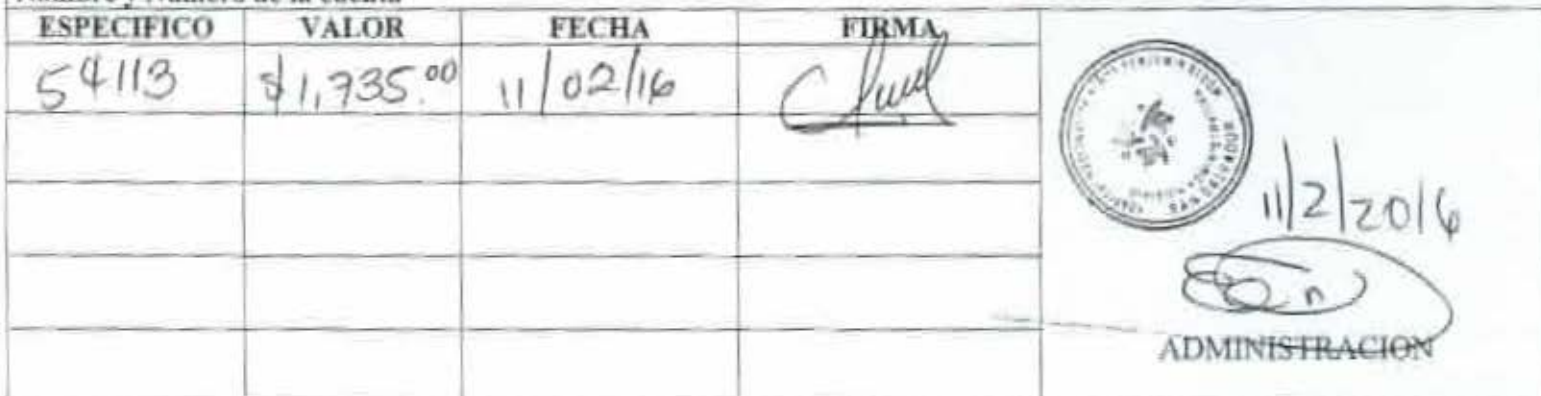 ESPECIFICO VALOR FECHA FIRMA
54113 $1,735.00 11/02/16
11/2/2016
ADMINISTRACION